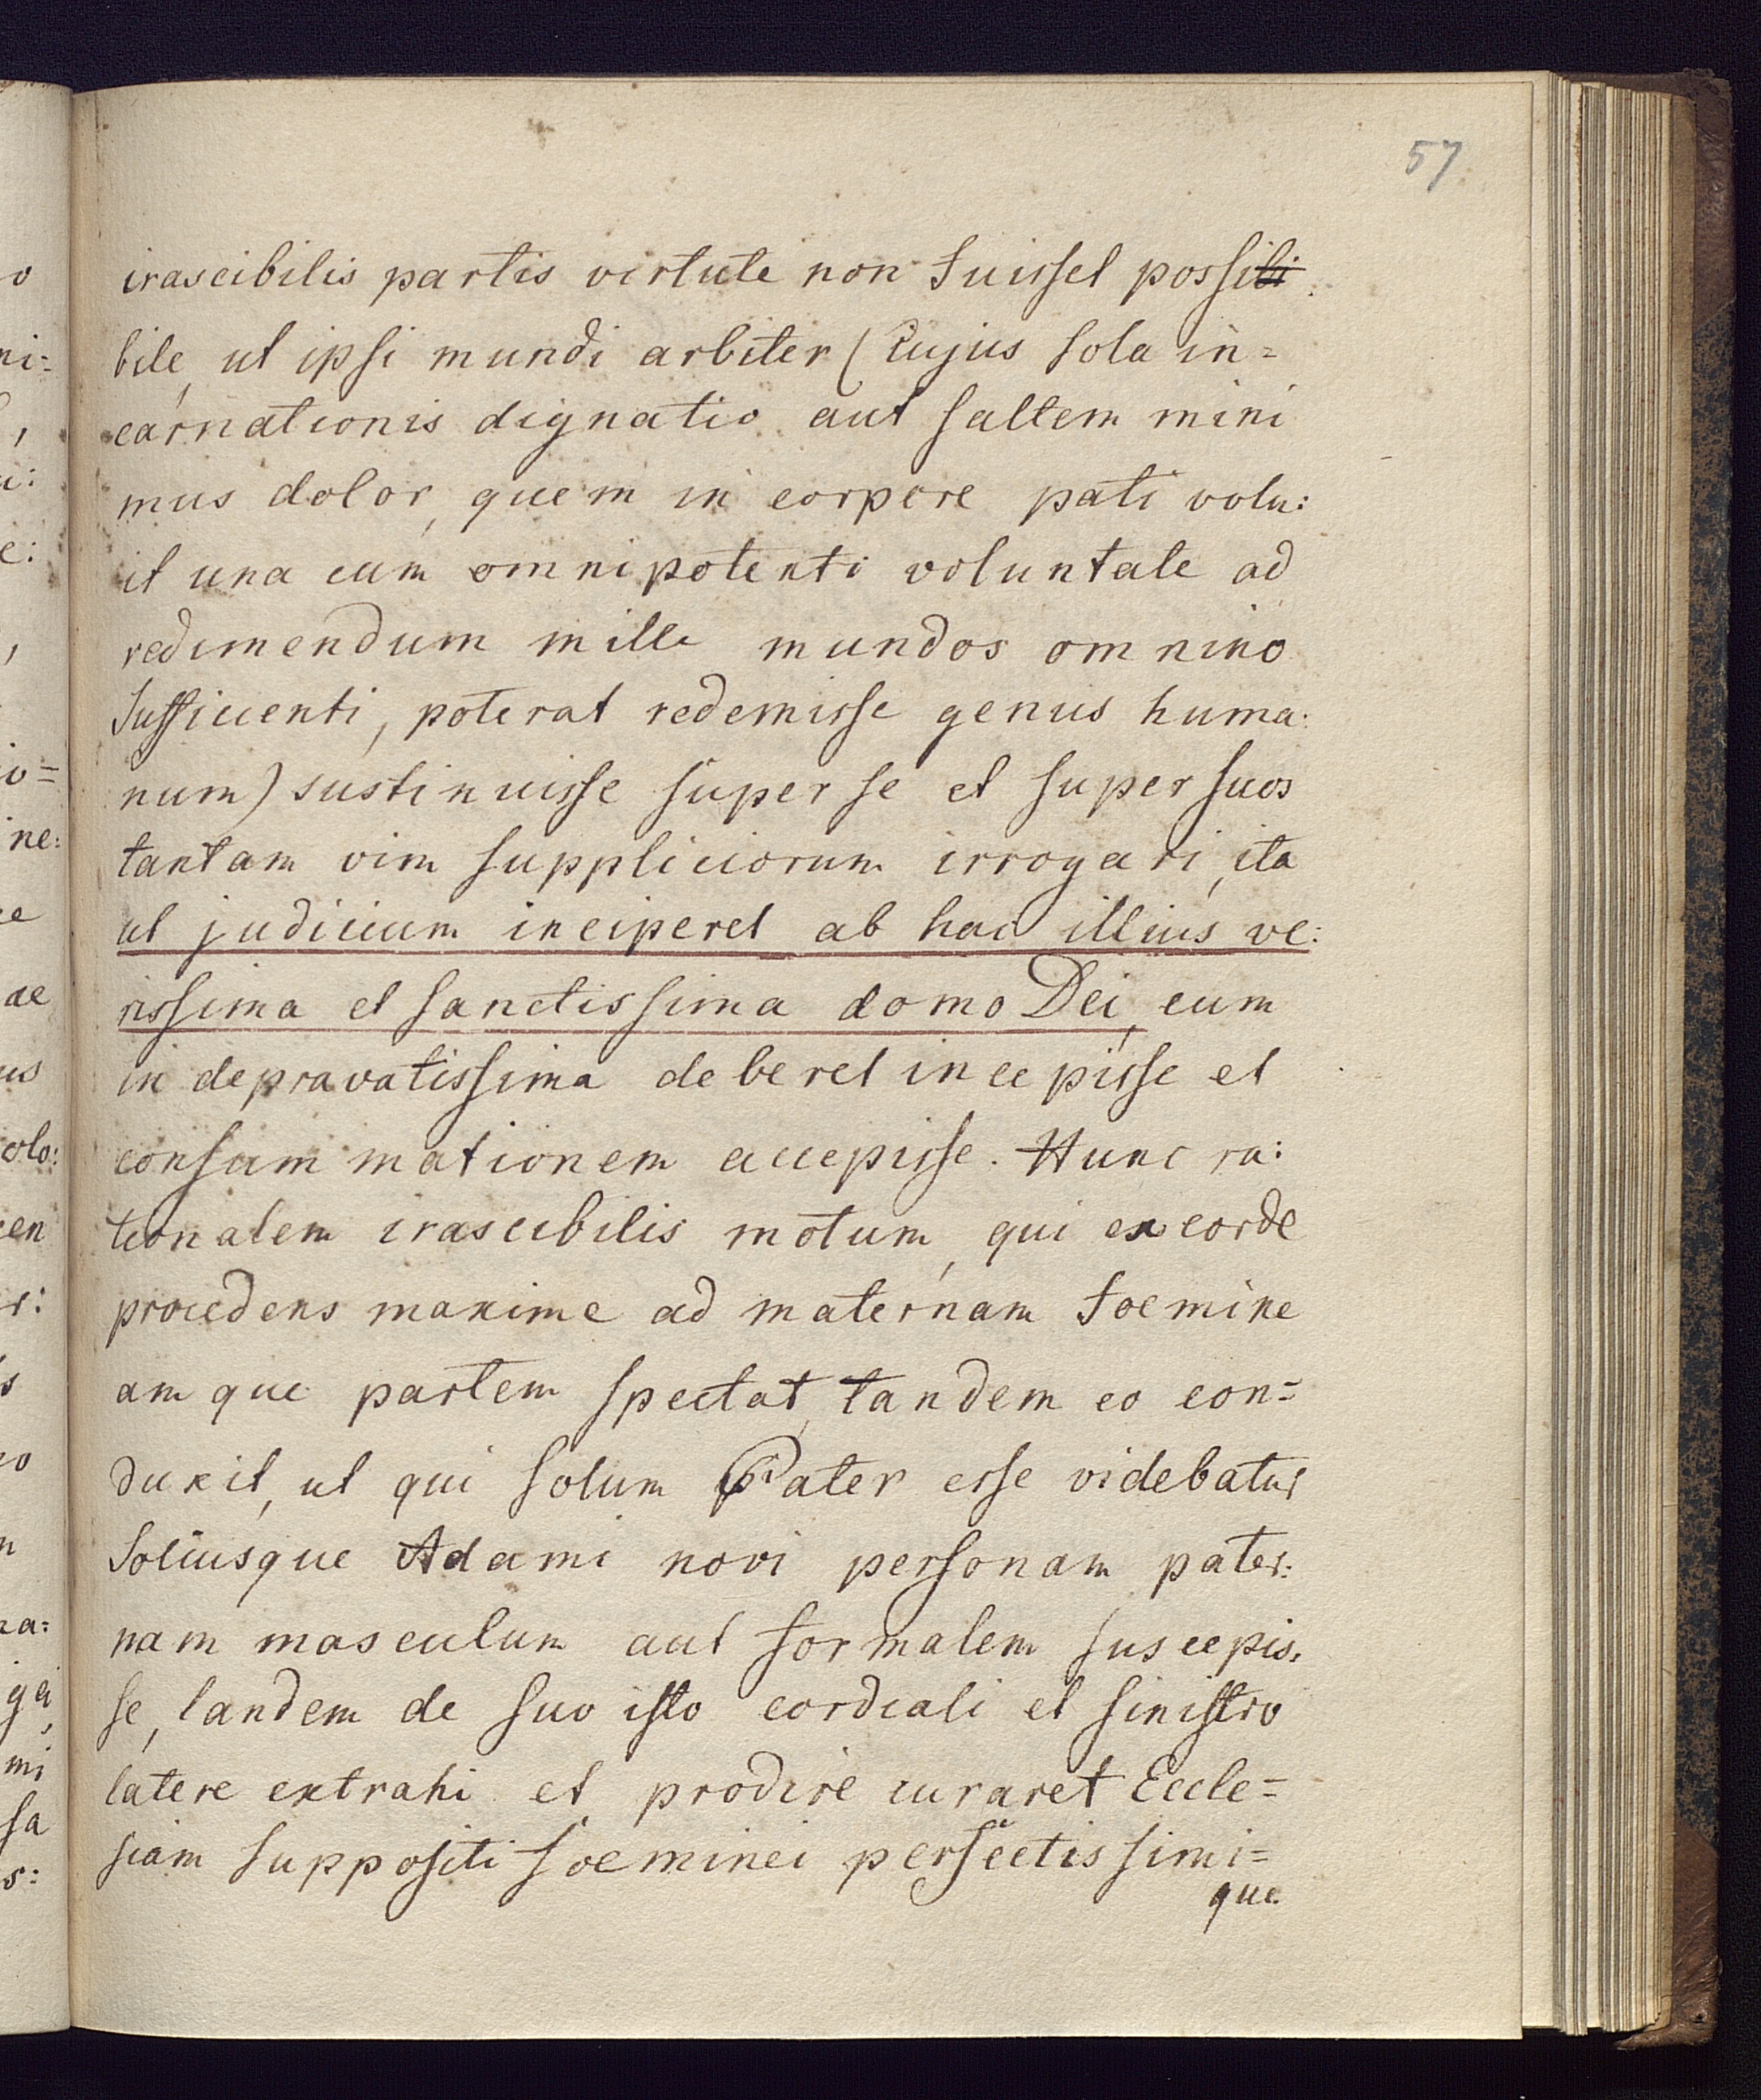 57
irascibilis partis virtute non fuisset possibi
bile, ut ipsi mundi arbiter (Cujus sola in=
carnationis dignatio aut saltem mini
mus dolor, quem in corpore pati volu:
it una cum omnipotenti voluntate ad
redimendum mille mundos omnino
sufficienti, poterat redemisse genus huma:
num) sustinuisse super se et super suos
tantam vim suppliciorum irrogari, ita
ut judicium inciperet ab hac illius ve:
rissima et sanctissima domo Dei, cum
in depravatissima deberet incepisse et
consummationem accepisse. Hunc ra:
tionalem irascibilis motum, qui ex corde
procedens maxime ad maternam foemine
am que partem spectat, tandem eo con=
duxit, ut qui solum Pater esse videbatur
soliusque Adami novi personam pater:
nam masculum aut formalem suscepis,
se, tandem de suo isto cordiali et sinistro
latere extrahi et prodire curaret Eccle=
siam suppositi foeminei perfectissimi=
que